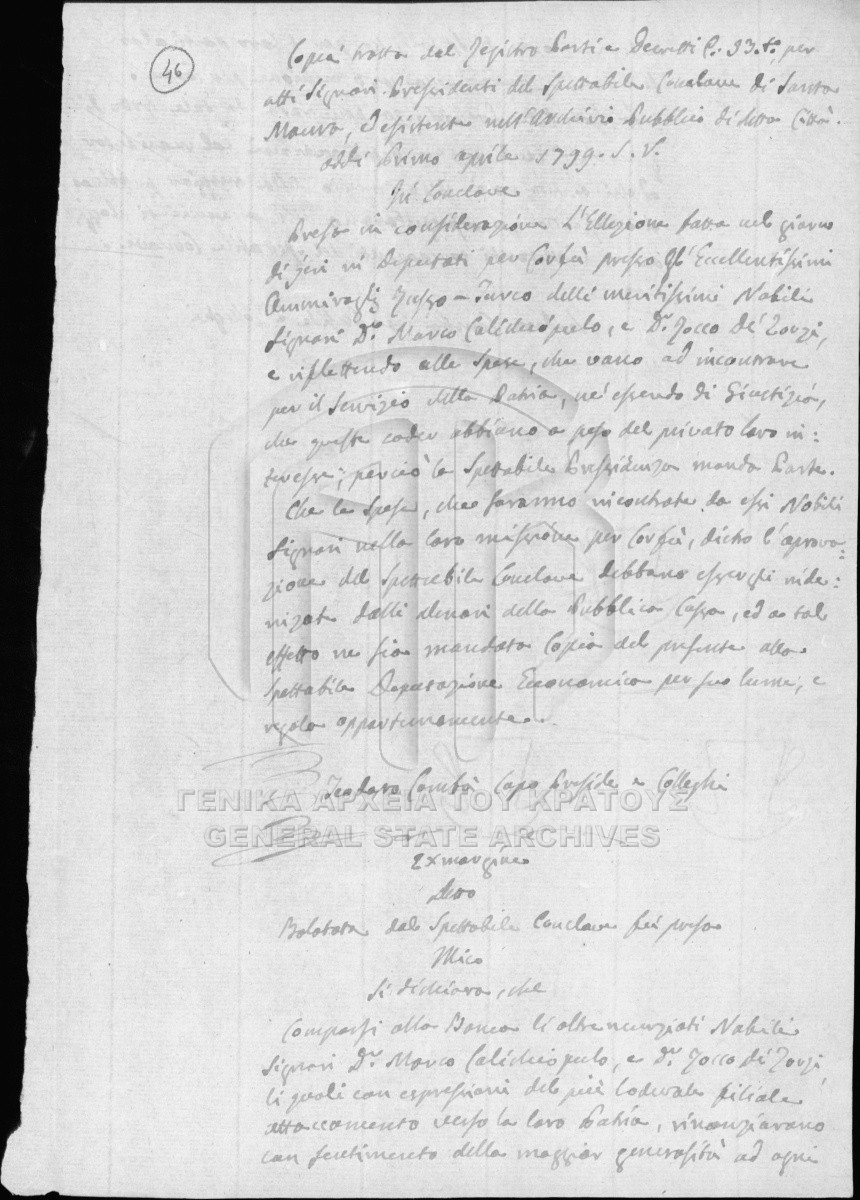 46
Copia tratta dal Registro Parti e Decretti C. 33. to. per
atti Signori Presidenti del Spettabile Conclave di Santa
Maura, Esistente nell'Archivio Pubblico di detta Città.
addi Primo aprile 1799. S. V.
In Conclave
Presa in considerazione L'Ellezione fatta nel giorno
di jeri in Deputati per Corfù presso gl'Eccellentissimi
Ammiragli Russo = Turco delli meritissimi Nobili
Signori Dr. Marco Calichiópulo, e Dr. Zocco de' Zorzi,
e riflettendo alle Spese, che vano ad incontrare
per il Servizio della Patria, né essendo di Giustizia,
che queste cader abbiano a peso del privato loro in:
teresse; perciò la Spettabile Pressidenza manda Parte.
Che le Spese, che saranno incontrate da essi Nobili
Signori nella loro missione per Corfù, dietro l'aprova:
zione del Spettabile Conclave debbano essergli inde:
nizate dalli denari della Pubblica Cassa, ed a tal
effetto ne sia mandata Copia del presente alla
Spettabile Deputazione Economica per suo lume, e
regola opportunamente.
Teodoro Capo Preside e Colleghi
ΓΕΝΙΚΑ ΑΡΧΕΙΑ ΤΟΥ ΚΡΑΤΟΥΣ
GENERAL STATE ARCHIVES
Ex margine
Detto
Balotata dal Spettabile Conclave fù presa
Mico
Si dichiara, che
Comparsi alla Banca li oltrenunziati Nobili
Signori Dr. Marco Calichiopulo, e Dr. Zocco de' Zorzi,
li quali con espressioni del più lodevole filiale
attaccamento verso la loro Patria, rinonziarono
con sentimento della maggior generosità ad ogni